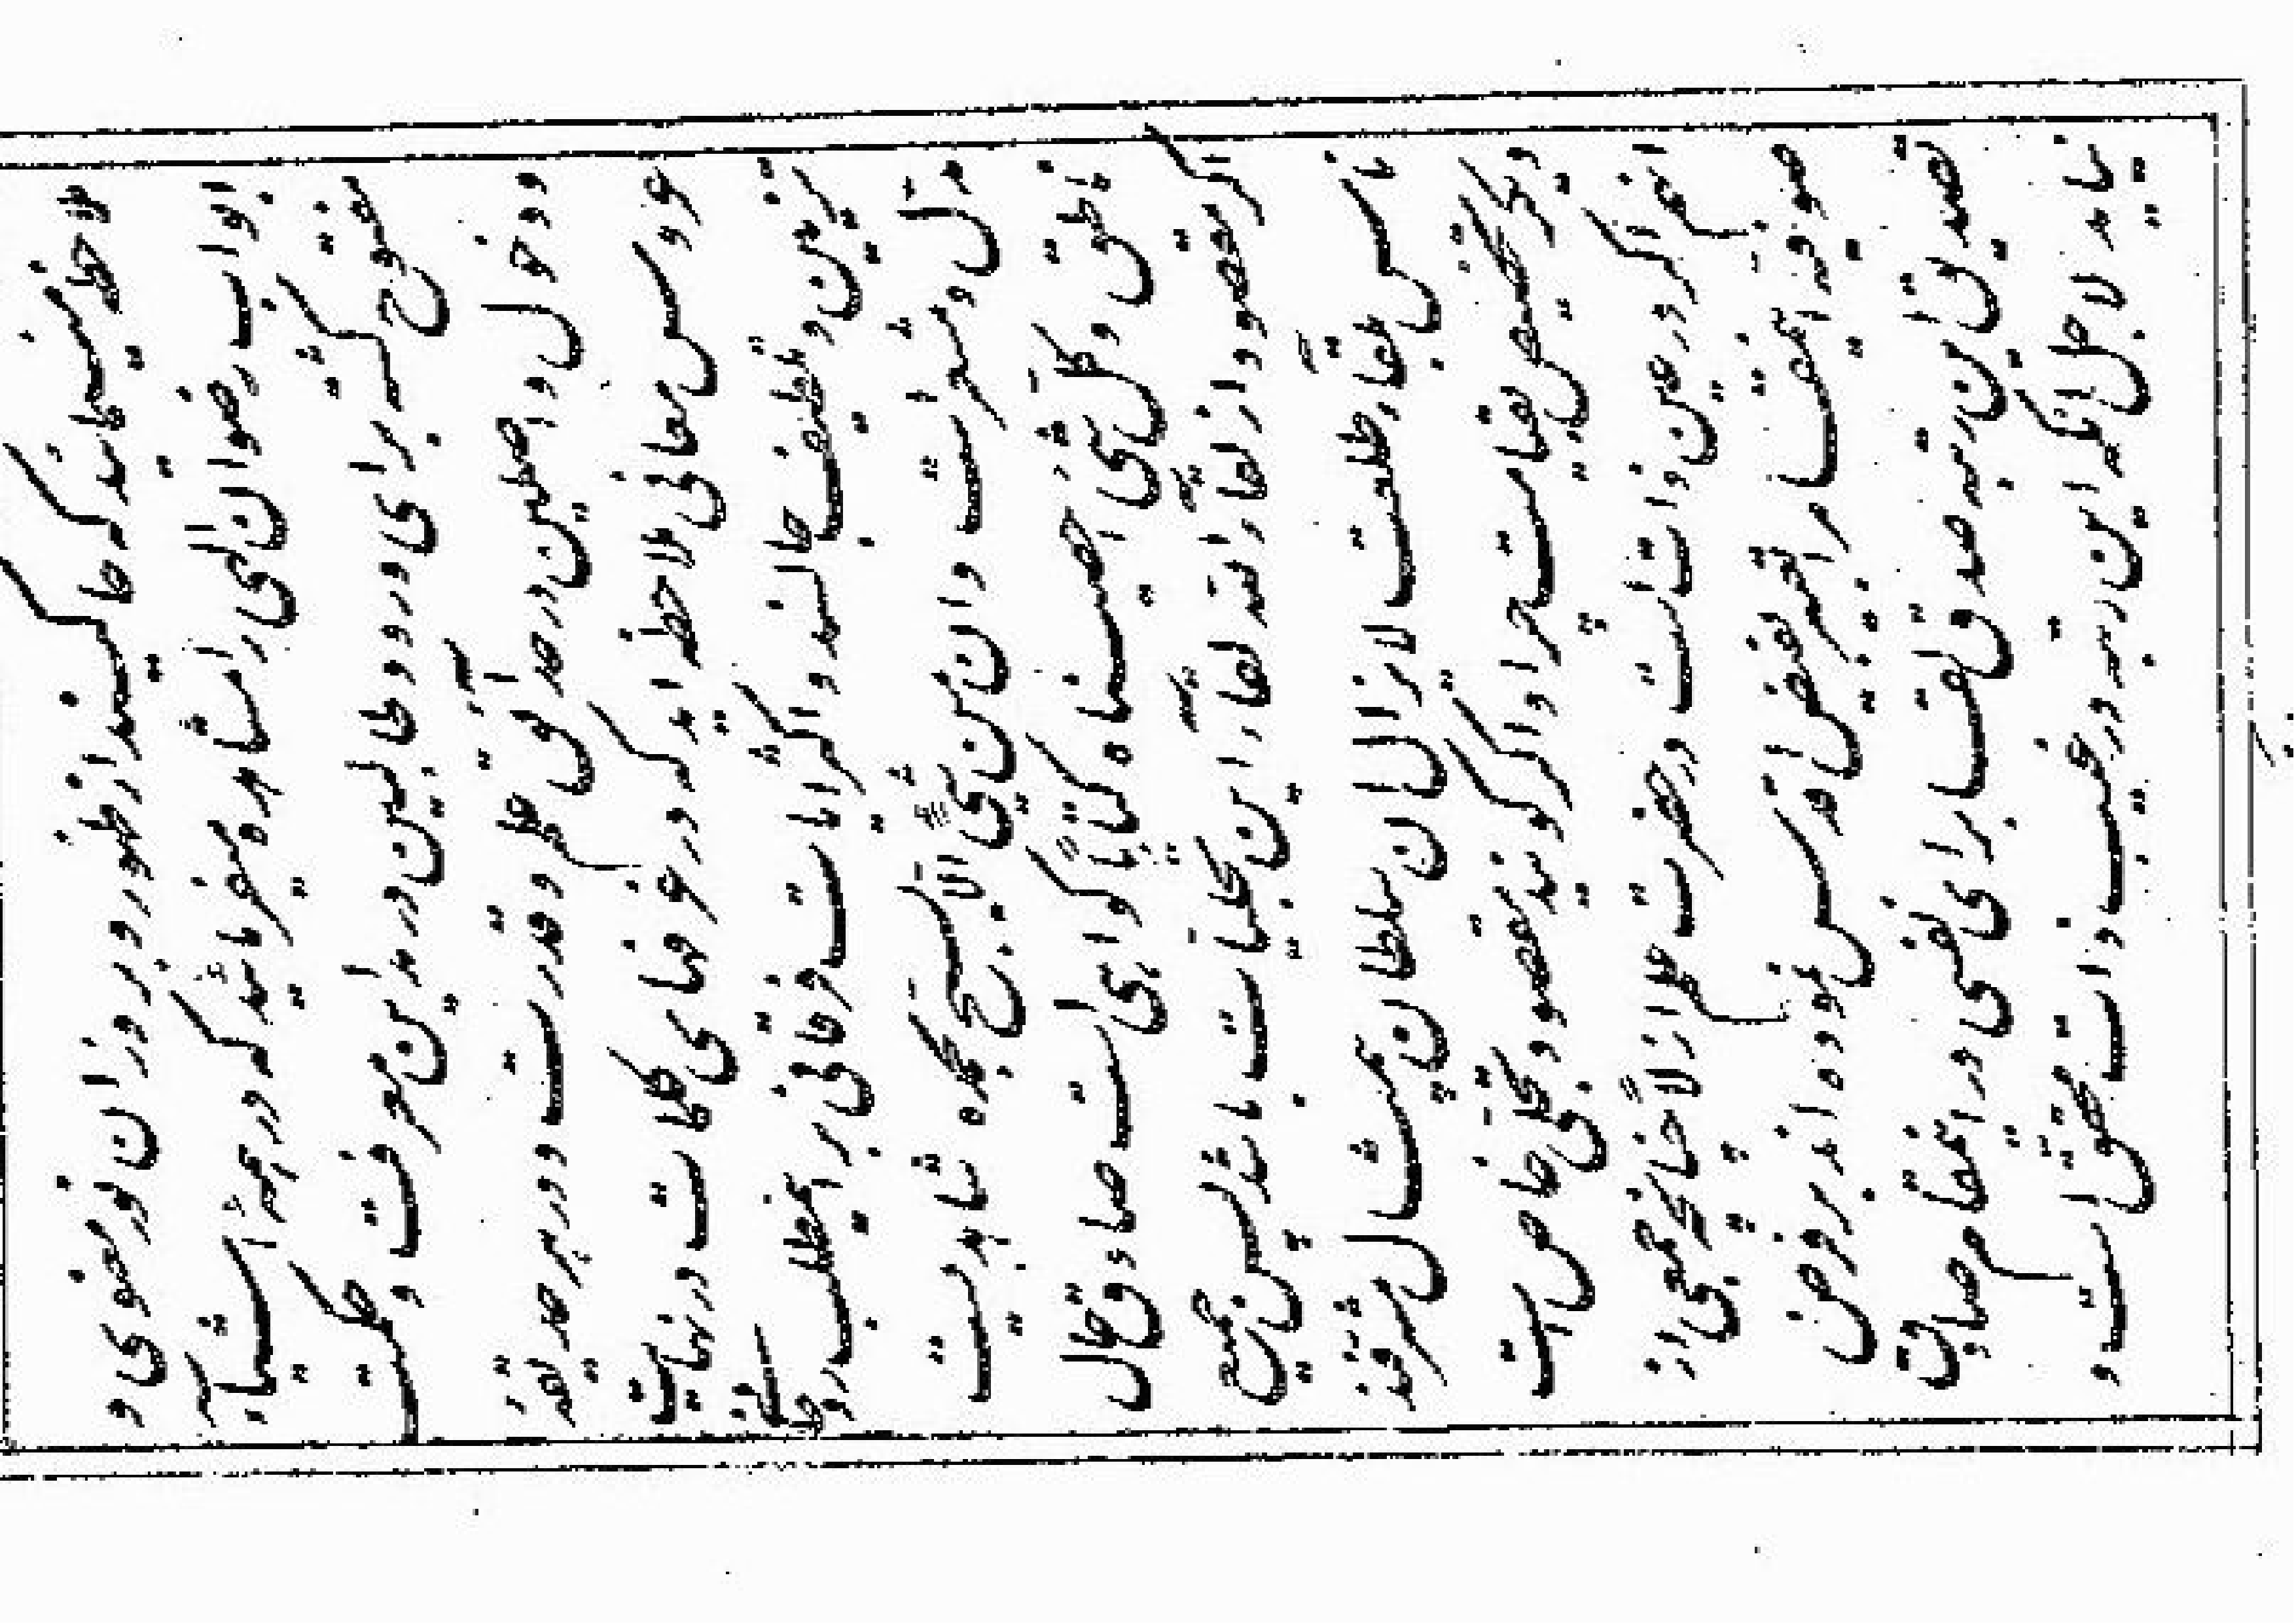 ملاحظه مینمائید که حاکیند از ظهور و بروز ان نور معنوی و
ابواب رضوان الهی را مشاهده میفرمائید که در همه اشیاء
مفتوح گشته برای ورود طالبین در مدائن معرفت و حکمت
و دخول واصلین در حدائق علم و قدرت و در هر حدیقه
عروس معانی ملاحظه اید که در غرفهای کلمات در نهایت
تزیین و تلطیف جالسند و اکثر ایات فرقانی بر این مطلب روحانی
مدل و مشعر است و ان من شیء الّا یسبّح بحمده شاهدیست
ناطق و کلّ شیء احصیناه کتاباً گواهی است صادق حال
اگر مقصود از لقاء الله لقاء این تجلّیات باشد پس جمیع
ناس بلقاء طلعت لایزال ان سلطان بیمثال مشرّفند
دیگر تخصیص بقیامت چرا و اگر گویند مقصود تجلّی خاص است
انهم اگر در عین ذات است در حضرت علم ازلاً چنانچه جمعی از
صوفیه این مقام را تعبیر بفیض اقدس نموده اند بر فرض
تصدیق این رتبه صدق لقا برای نفسی در این مقام صادق
نیاید لاجل انکه این رتبه در غیب ذات محقّق است و